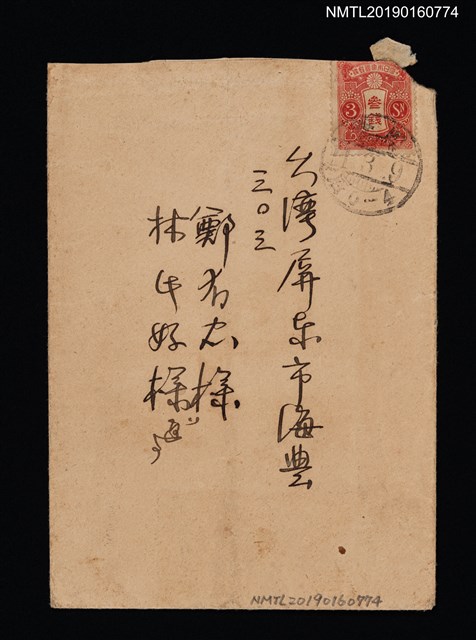 NMTL20190160774
3 参銭 Sn
台湾屏東市海豊
三〇三
鄭有忠様
林氏好様
NMTL20190160774